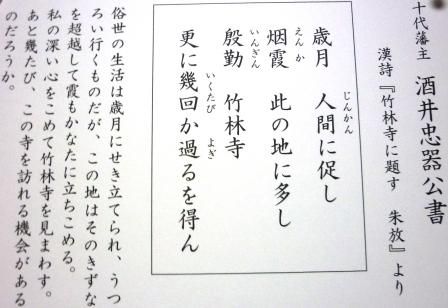 十代藩主　酒井忠器公書
漢詩『竹林寺に題す　朱放』より
歳月　人間に促し
じんかん
烟霞　此の地に多し
えんか
殷勤　竹林寺
いんぎん
更に幾回か過るを得ん
いくたび
よぎ
俗世の生活は歳月にせき立てられ、うつ
ろい行くものだが、この地はそのきずな
を超越して霞もかなたに立ちこめる。
私の深い心をこめて竹林寺を見まわす。
あと幾たび、この寺を訪れる機会がある
のだろうか。